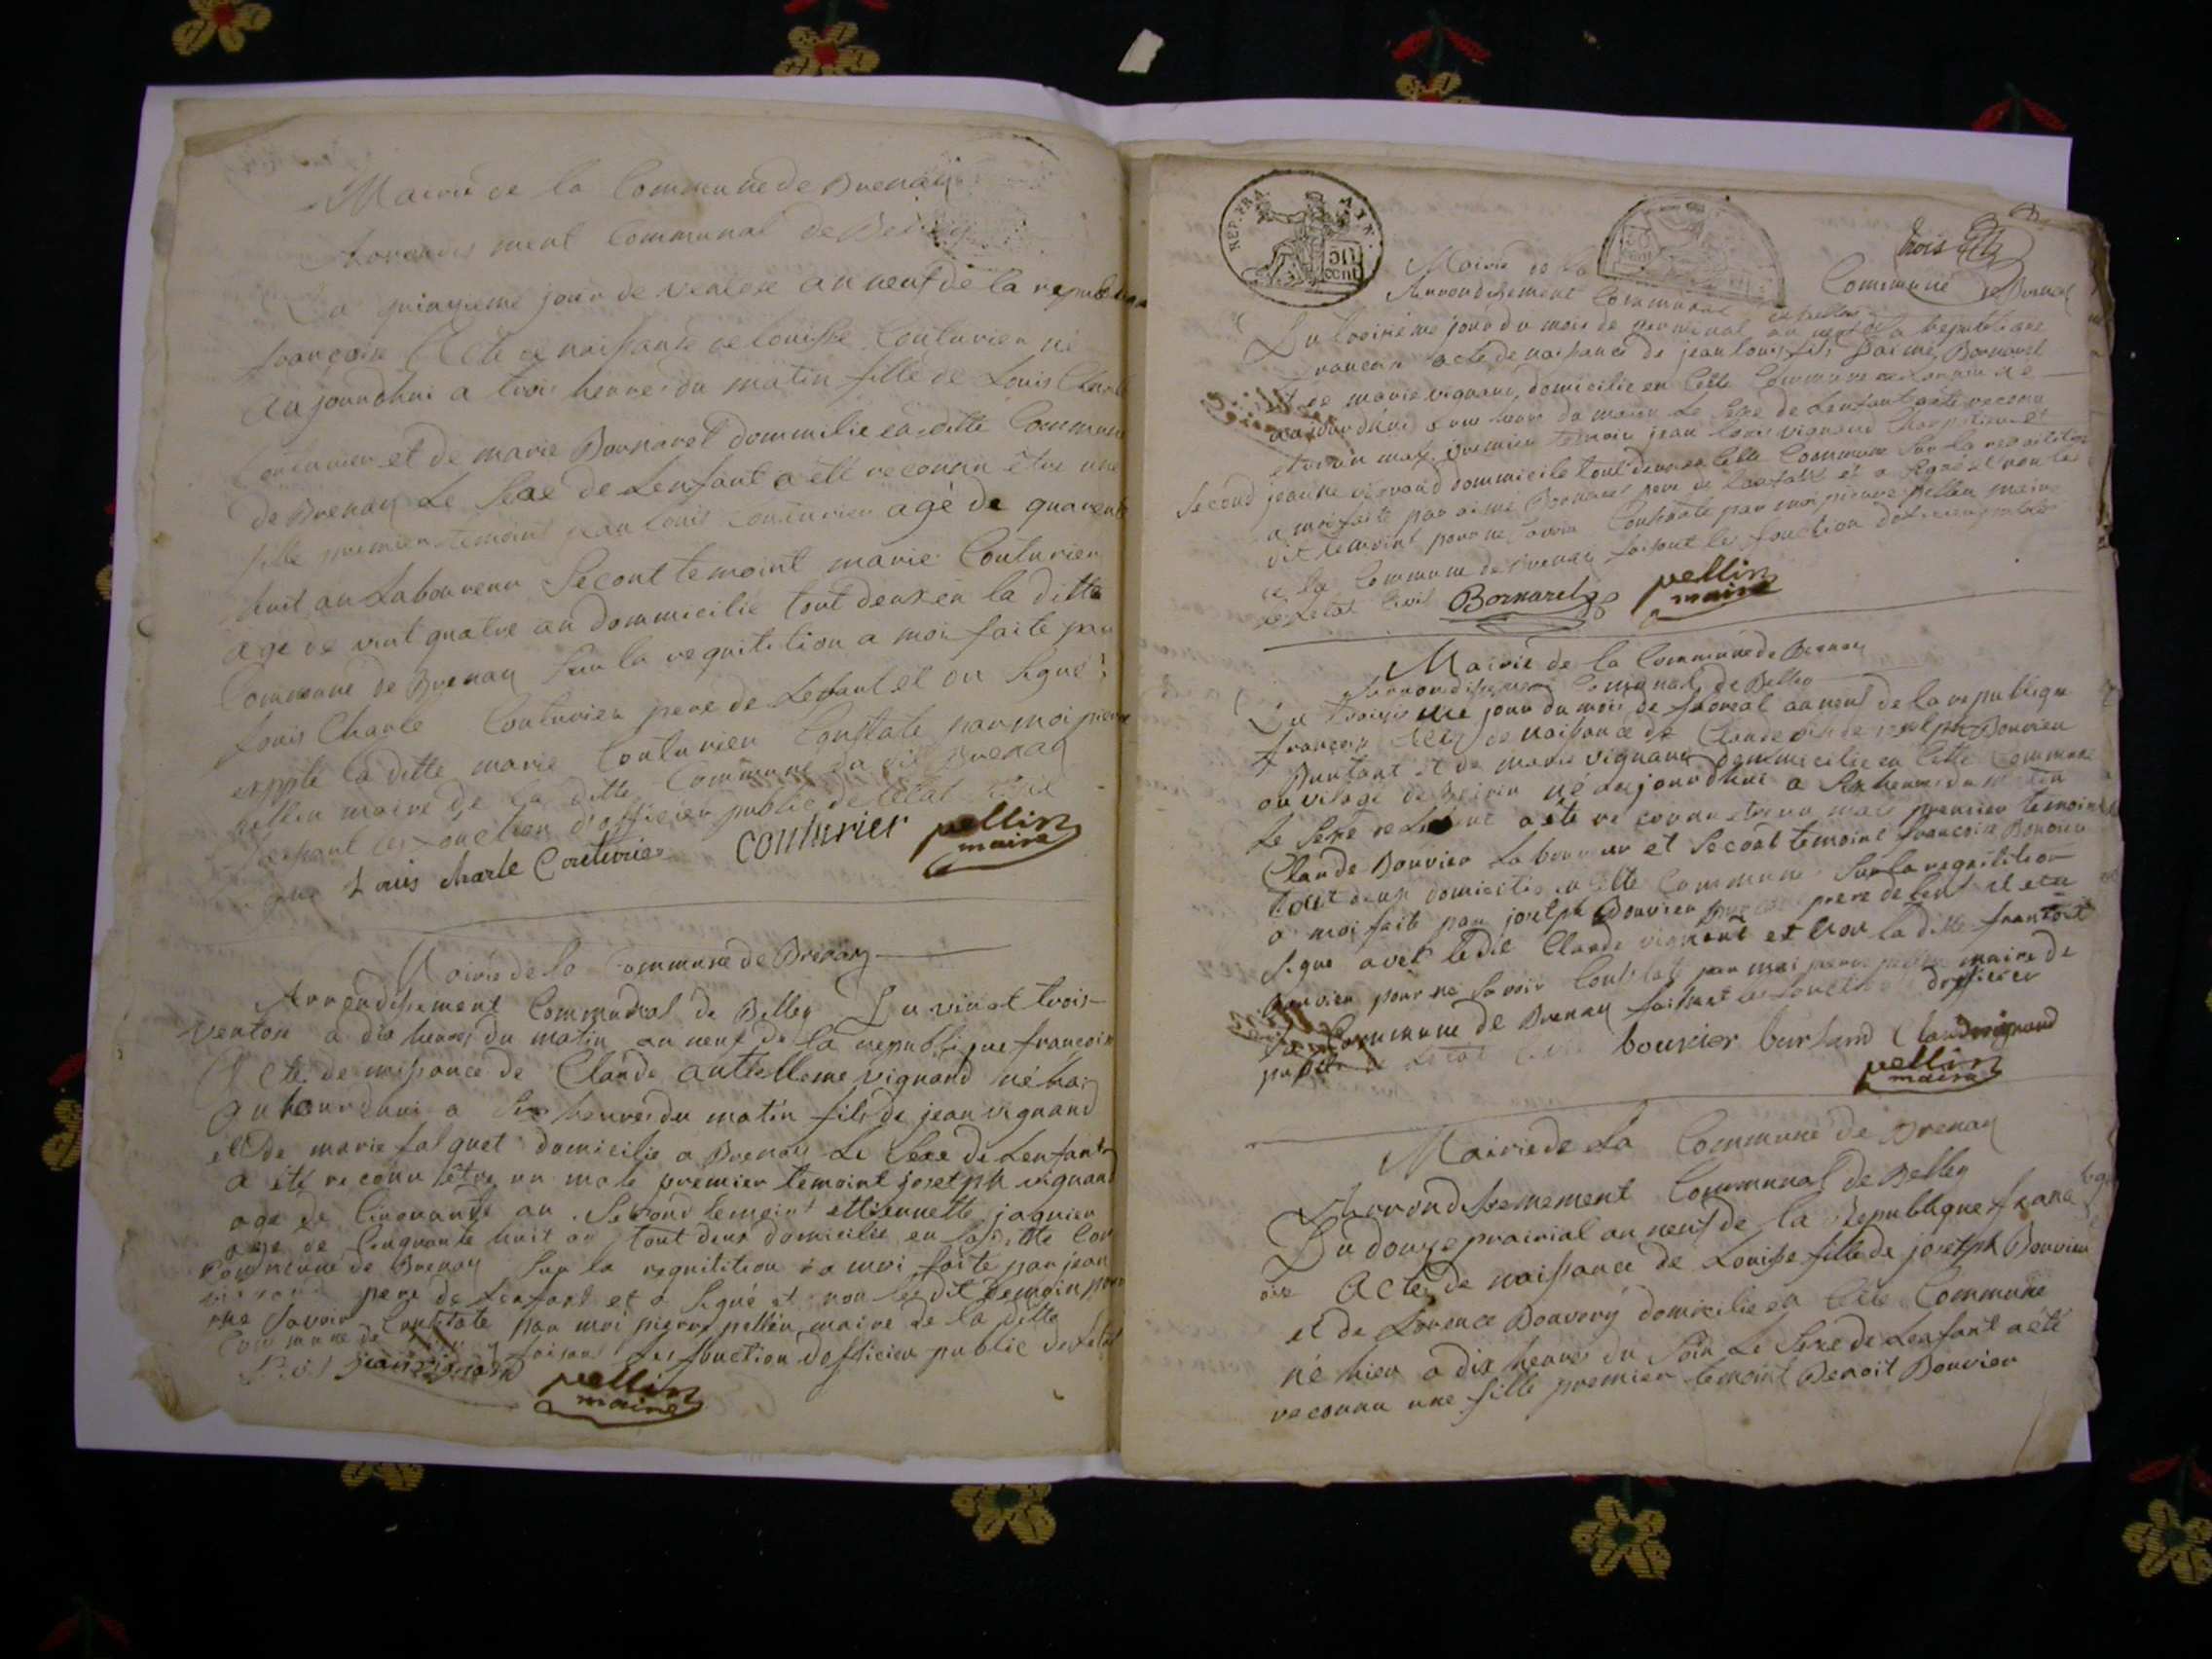 Mairie de la Commune de Brenay
Arrondis ment Communal de Belley
quinzieme jour de ventose an neuf de la republique
françoise Acte de naissance de louisse Couturier né
aujourdhui a trois heures du matin fille de Louis Charle
Couturier et de marie Bornarel dommicilie en ditte Commune
de Brenay Le Sexe de Lenfant a été reconnu être une
fille premier temoint jean louis couturier agé de quarente
huit an Laboureur Second temoint marie Couturier
age de vint quatre an dommicilié tout deux en la ditte
Commune de Brenay Sur la requitition a moi faite par
Louis Charle Couturier pere de Lenfant et on Signé
exepté la ditte marie Couturier Constaté par moi pierre
pellin maire de la ditte Commune du dit Brenay
faisant les fonction d'officier public de letat civil
Louis charle Couturier couturier pellin
maire
Mairie de la Commune de Brenay
Arrondissement Communal de Belley Du vint trois
ventose a dix heures du matin an neuf de la republique françoise
Acte de naissance de Claude anthelleme vignand né
aujourdhui a Six heures du matin fils de jean vignand
et De marie falquet domicilie a Brenay Le Sexe de Lenfant
a été reconu être un male premier temoint josetph vignand
age de Cinquante an Second temoint ettiennette jaquier
age de Cinquante huit an tout deux domicilié en laditte Com
Commune de Brenay Sur la requitition a moi faite par jean
vignand pere de Lenfant et a Signé et non les dit temoin pour
ne Savoir Constaté par moi pierre pellin maire de la ditte
Commune de Brenay faisant les fonction dofficier public de letat
Civil jean vignand pellin
maire
REP. FRA. 50 cent
trois
Mairie de la Commune de Brenay
Arrondissement Communal de belley
Du troisième jour du mois de germinal an neuf de la republique
francoise acte de naissance de jean louis fils Daimé Bornarel
et de marie vignand, domicilie en Cette Commune de Brenay né
aujourdhui a une heure du matin Le Sexe de Lenfant a été reconu
etre un male premier temoin jean louis vignand Charpentier et
Second jeanne vignand dommicilé tout deux en Cette Commune Sur la requitition
a moi faite par aimé Bornarel pere de Lenfant et a Signé et non les
dit temoint pour ne Savoir Constaté par moi pierre pellin maire
de la Commune de Brenay faisant les fonction dofficier public
de Letat Civil Bornarel pellin
maire
Mairie de la Commune de Brenay
Arrondissement Comunal de Belley
Du troisieme jour du mois de floreal an neuf de la republique
françoise Acte de naissance de Claude fils de josetph Bouvier
Burtant et de marie vignand Dommicilié en Cette Commune
au vilage de né aujourdhui a Six heures du matin
le Sexe de Lenfant a été reconnu etre un male premier temoint
Claude Bouvier Laboureur et Second temoint françoise Bouvier
tout deux domicilié en Cette Commune Sur la requitition
a moi faite par josetph Bouvier pere de Lenfant et a
Signé avec ledit Claude vignand et non la ditte françoise
Bouvier pour ne Savoir Constaté par moi pierre pellin maire de
la Commune de Brenay faisant les fonction dofficier
public de Letat Civil bouvier burtand Claude vignand
pellin
maire
Mairie de La Commune de Brenay
Arrondissemement Communal de Belley
Du douze prairial an neuf de la Republique franc
oise Acte de naissance de Louisse fille de josetph Bouvier
et de Lorence Bouvery domicilie en Cete Commune
né hier a dix heures du Soir Le Sexe de Lenfant a été
reconnu une fille premier temoint Benoit Bouvier